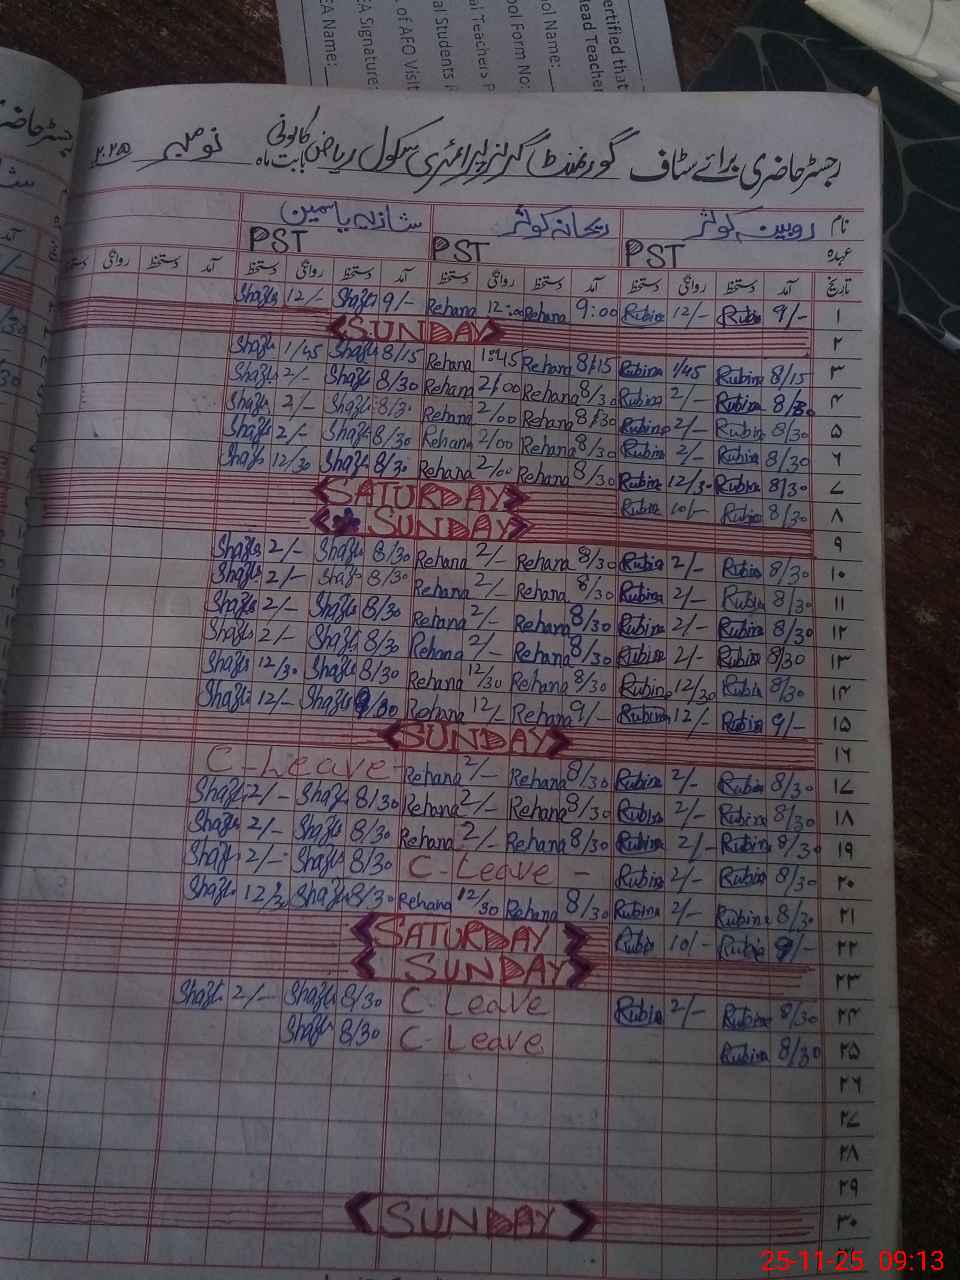 ertified that
Head Teacher
ool Name:
ool Form No:
al Teachers P
al Students
. of AFO Visit
EA Signature:
EA Name:
رجسٹر حاضری برائے سٹاف گورنمنٹ گرلز پرائمری سکول ریاض کالونی بابت ماہ نومبر ۲۰۲۵
نام روبینہ کوثر ریحانہ کوثر شازیہ یاسمین
عہدہ PST PST PST
تاریخ آمد دستخط روانگی دستخط آمد دستخط روانگی دستخط آمد دستخط روانگی دستخط آمد دستخط روانگی دستخط
۱ 9/- Rubin 12/- Rubin 9:00 Rehana 12:00 Rehana 9/- Shazli 12/- Shazli
۲ SUNDAY
۳ 8/15 Rubina 1/45 Rubina 8/15 Rehana 1:45 Rehana 8/15 Shazli 1/45 Shazli
۴ 8/30 Rubina 2/- Rubina 8/30 Rehana 2/00 Rehana 8/30 Shazli 2/- Shazli
۵ 8/30 Rubina 2/- Rubina 8/30 Rehana 2/00 Rehana 8/30 Shazli 2/- Shazli
۶ 8/30 Rubina 2/- Rubina 8/30 Rehana 2/00 Rehana 8/30 Shazli 2/- Shazli
۷ 8/30 Rubina 12/30 Rubina 8/30 Rehana 2/00 Rehana 8/30 Shazli 12/30 Shazli
۸ 8/30 Rubin 10/- Rubin SATURDAY
۹ SUNDAY
۱۰ 8/30 Rubin 2/- Rubin 8/30 Rehana 2/- Rehana 8/30 Shazli 2/- Shazli
۱۱ 8/30 Rubin 2/- Rubina 8/30 Rehana 2/- Rehana 8/30 Shazli 2/- Shazli
۱۲ 8/30 Rubin 2/- Rubina 8/30 Rehana 2/- Rehana 8/30 Shazli 2/- Shazli
۱۳ 8/30 Rubin 2/- Rubina 8/30 Rehana 2/- Rehana 8/30 Shazli 2/- Shazli
۱۴ 8/30 Rubin 12/30 Rubina 8/30 Rehana 12/30 Rehana 8/30 Shazli 12/30 Shazli
۱۵ 9/- Rubin 12/- Rubina 9/- Rehana 12/- Rehana 9/00 Shazli 12/- Shazli
۱۶ SUNDAY
۱۷ 8/30 Rubin 2/- Rubin 8/30 Rehana 2/- Rehana C-Leave-
۱۸ 8/30 Rubina 2/- Rubina 8/30 Rehana 2/- Rehana 8/30 Shazli 2/- Shazli
۱۹ 8/30 Rubina 2/- Rubina 8/30 Rehana 2/- Rehana 8/30 Shazli 2/- Shazli
۲۰ 8/30 Rubin 2/- Rubin C-Leave - 8/30 Shazli 2/- Shazli
۲۱ 8/30 Rubina 2/- Rubina 8/30 Rehana 12/30 Rehana 8/30 Shazli 12/30 Shazli
۲۲ 9/- Rubin 10/- Rubin SATURDAY
۲۳ SUNDAY
۲۴ 8/30 Rubina 2/- Rubin C-Leave 8/30 Shazli 2/- Shazli
۲۵ 8/30 Rubina C-Leave 8/30 Shazli
۲۶
۲۷
۲۸
۲۹
۳۰ SUNDAY
25-11-25 09:13